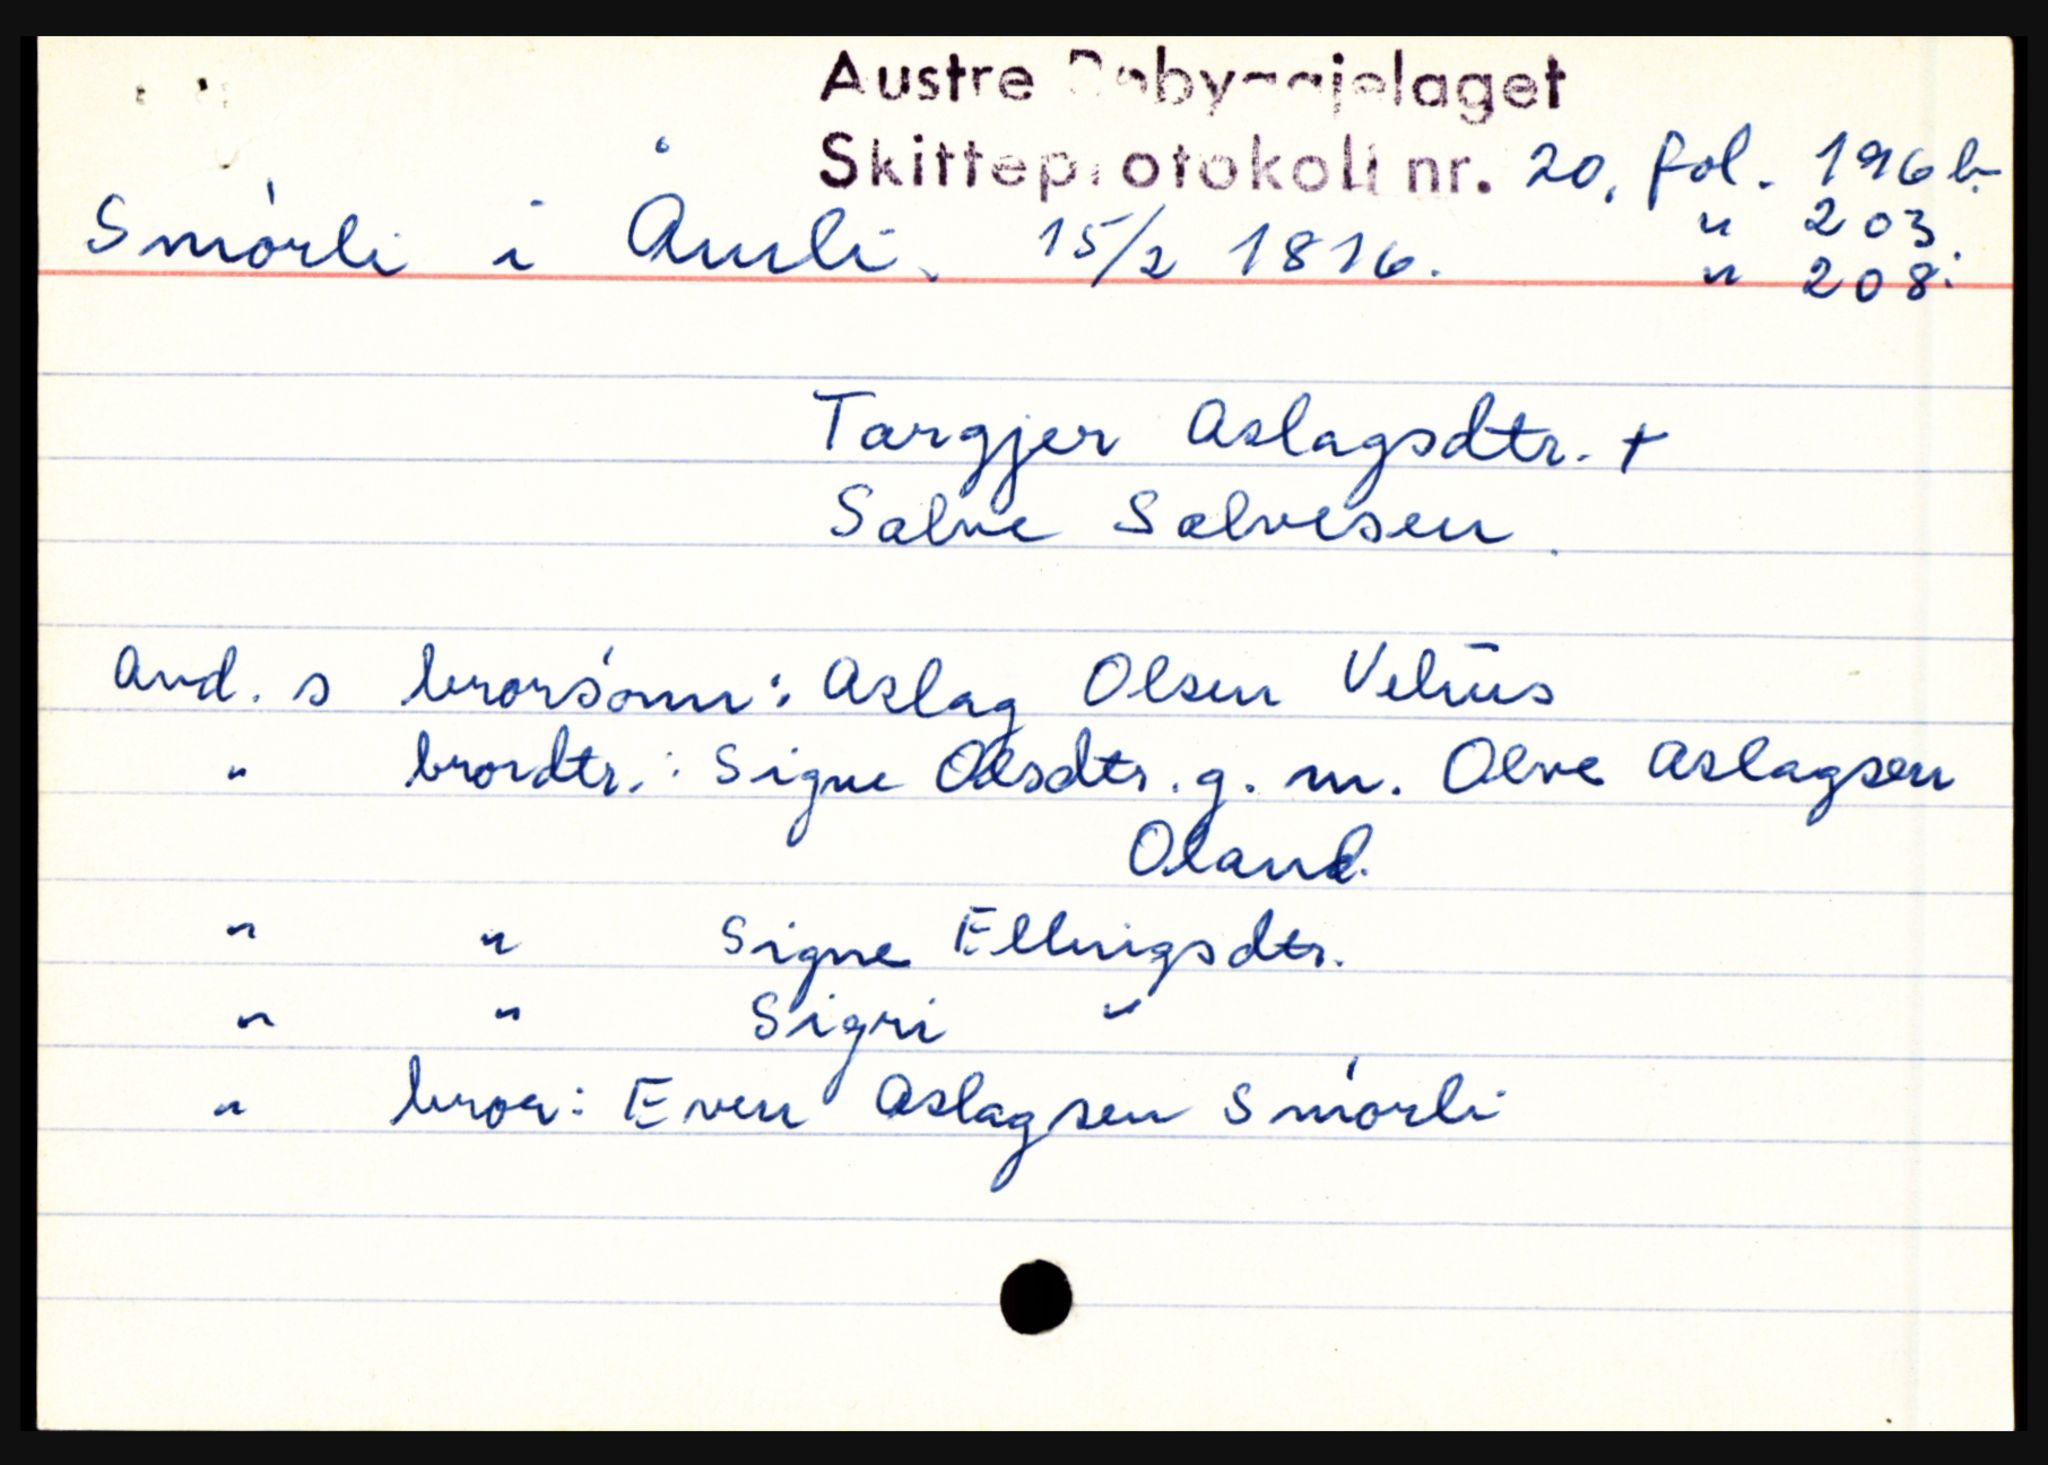 Austre Råbyggjelaget
Skifteprotokoll nr. 20, fol. 196 b.
" 203.
Smörli i Åmli. 15/2 1816. " 208.
Targjer Aslagsdtr. +
Salve Salvesen.
Avd. s brorsönn: Aslag Olsen
" brordtr.: Signe Olsdtr. g. m. Olve Aslagsen
Oland.
" " Signe Ellingsdtr.
" " Sigri "
" bror: Even Aslagsen Smörli